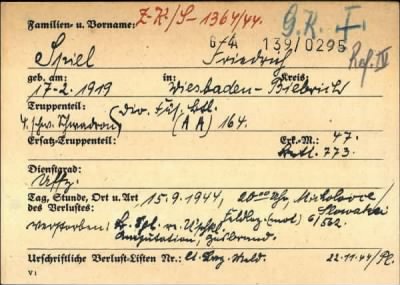 Familien- u. Vorname: Z.K./S-1364/44. G.K. I
6/4 139/0295
Spiel Friedrich Ref. IV
geb. am: in: Kreis:
17.2.1919 Wiesbaden-Biebrich
Truppenteil:
4. schw. Schwadron (Div. Füs. Btl. (A A) 164.
Ersatz-Truppenteil: Erk.-M.: 47.
773.
Dienstgrad:
Uffz.
Tag, Stunde, Ort u. Art 15.9.1944, 20.00 Uhr,
des Verlustes: Slowakei
verstorben: Gr. Spl. Feldlaz. (mot) 6/562.
Amputation,
Urschriftliche Verlust-Listen Nr.: lt. Meld. 22.11.44/
V 1